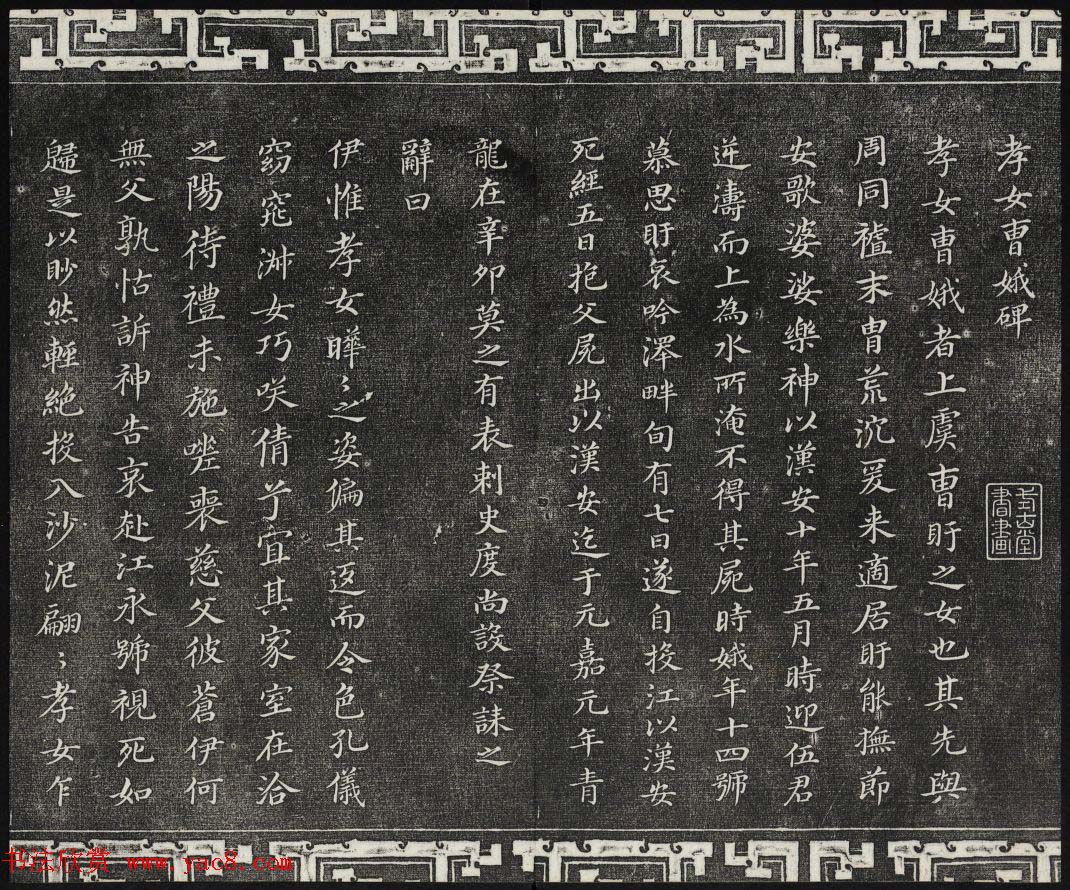 孝女曹娥碑
孝女曹娥者上虞曹盱之女也其先與
周同祖末胄荒沉爰来適居盱能撫節
安歌婆娑樂神以漢安十年五月時迎伍君
逆濤而上為水所淹不得其屍時娥年十四號
慕思盱哀吟澤畔旬有七日遂自投江以漢安
死經五日抱父屍出以漢安迄于元嘉元年青
龍在辛卯莫之有表刺史度尚設祭誄之
辭曰
伊惟孝女曄〻之姿偏其返而令色孔儀
窈窕淑女巧咲倩兮宜其家室在洽
之陽待禮未施嗟喪慈父彼蒼伊何
無父孰怙訴神告哀赴江永號視死如
歸是以眇然輕絶投入沙泥翩〻孝女乍
書畫
书法欣赏 www.yac8.com